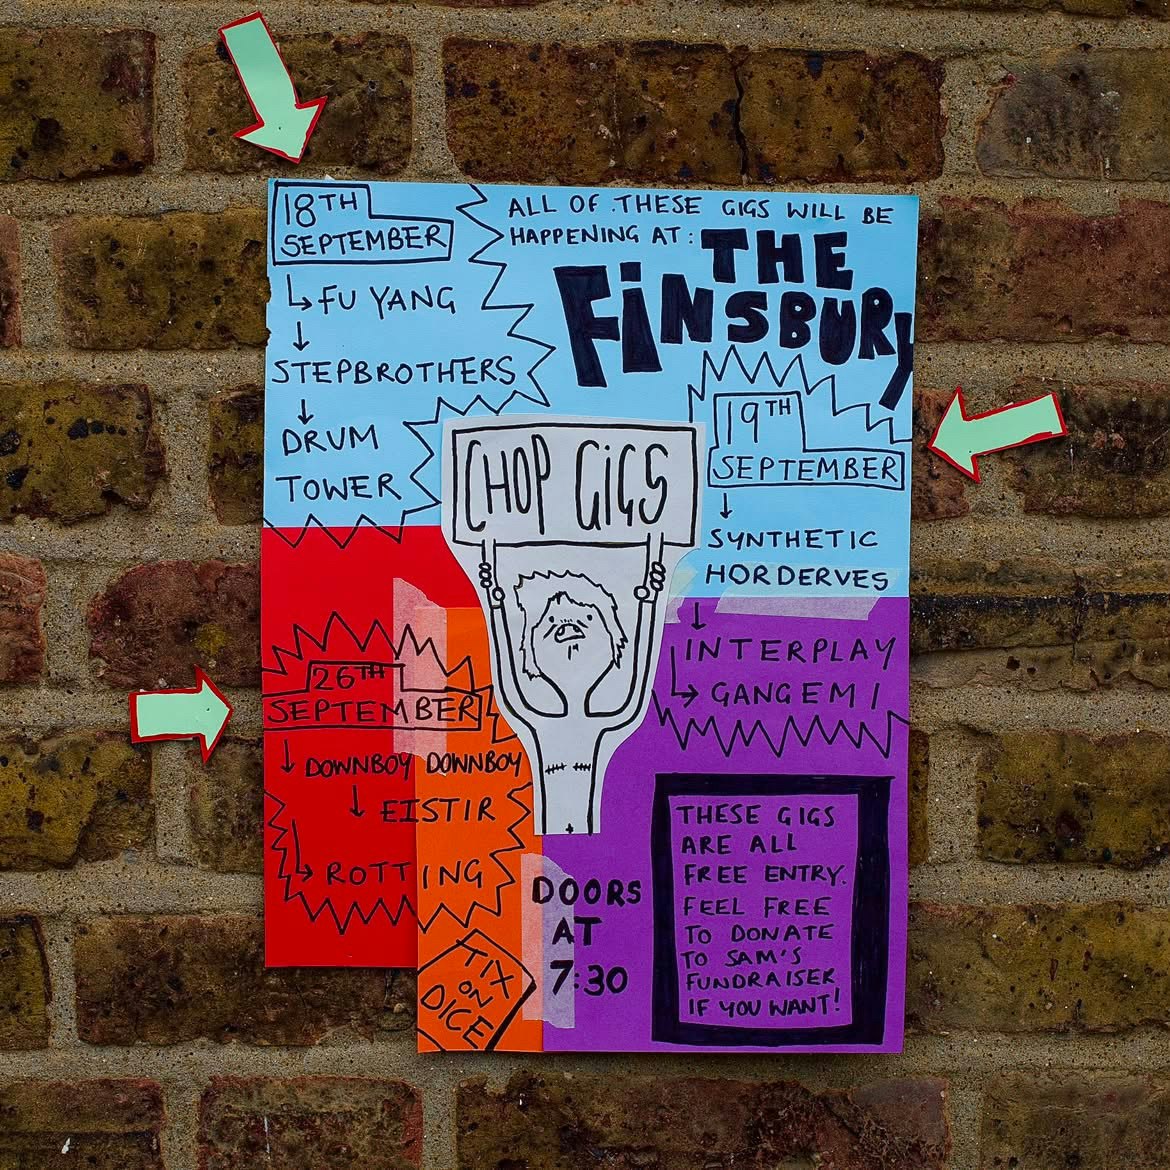 18TH
SEPTEMBER
FU YANG
STEPBROTHERS
DRUM
TOWER
ALL OF THESE GIGS WILL BE
HAPPENING AT:
THE
FiNSBURy
19TH
SEPTEMBER
SYNTHETIC
HORDERVES
INTERPLAY
GANGEMI
CHOP GiGS
26TH
SEPTEMBER
DOWNBOY DOWNBOY
EISTIR
ROTTING
TIX
ON
DICE
DOORS
AT
7:30
THESE GIGS
ARE ALL
FREE ENTRY.
FEEL FREE
TO DONATE
TO SAM'S
FUNDRAISER
IF YOU WANT!